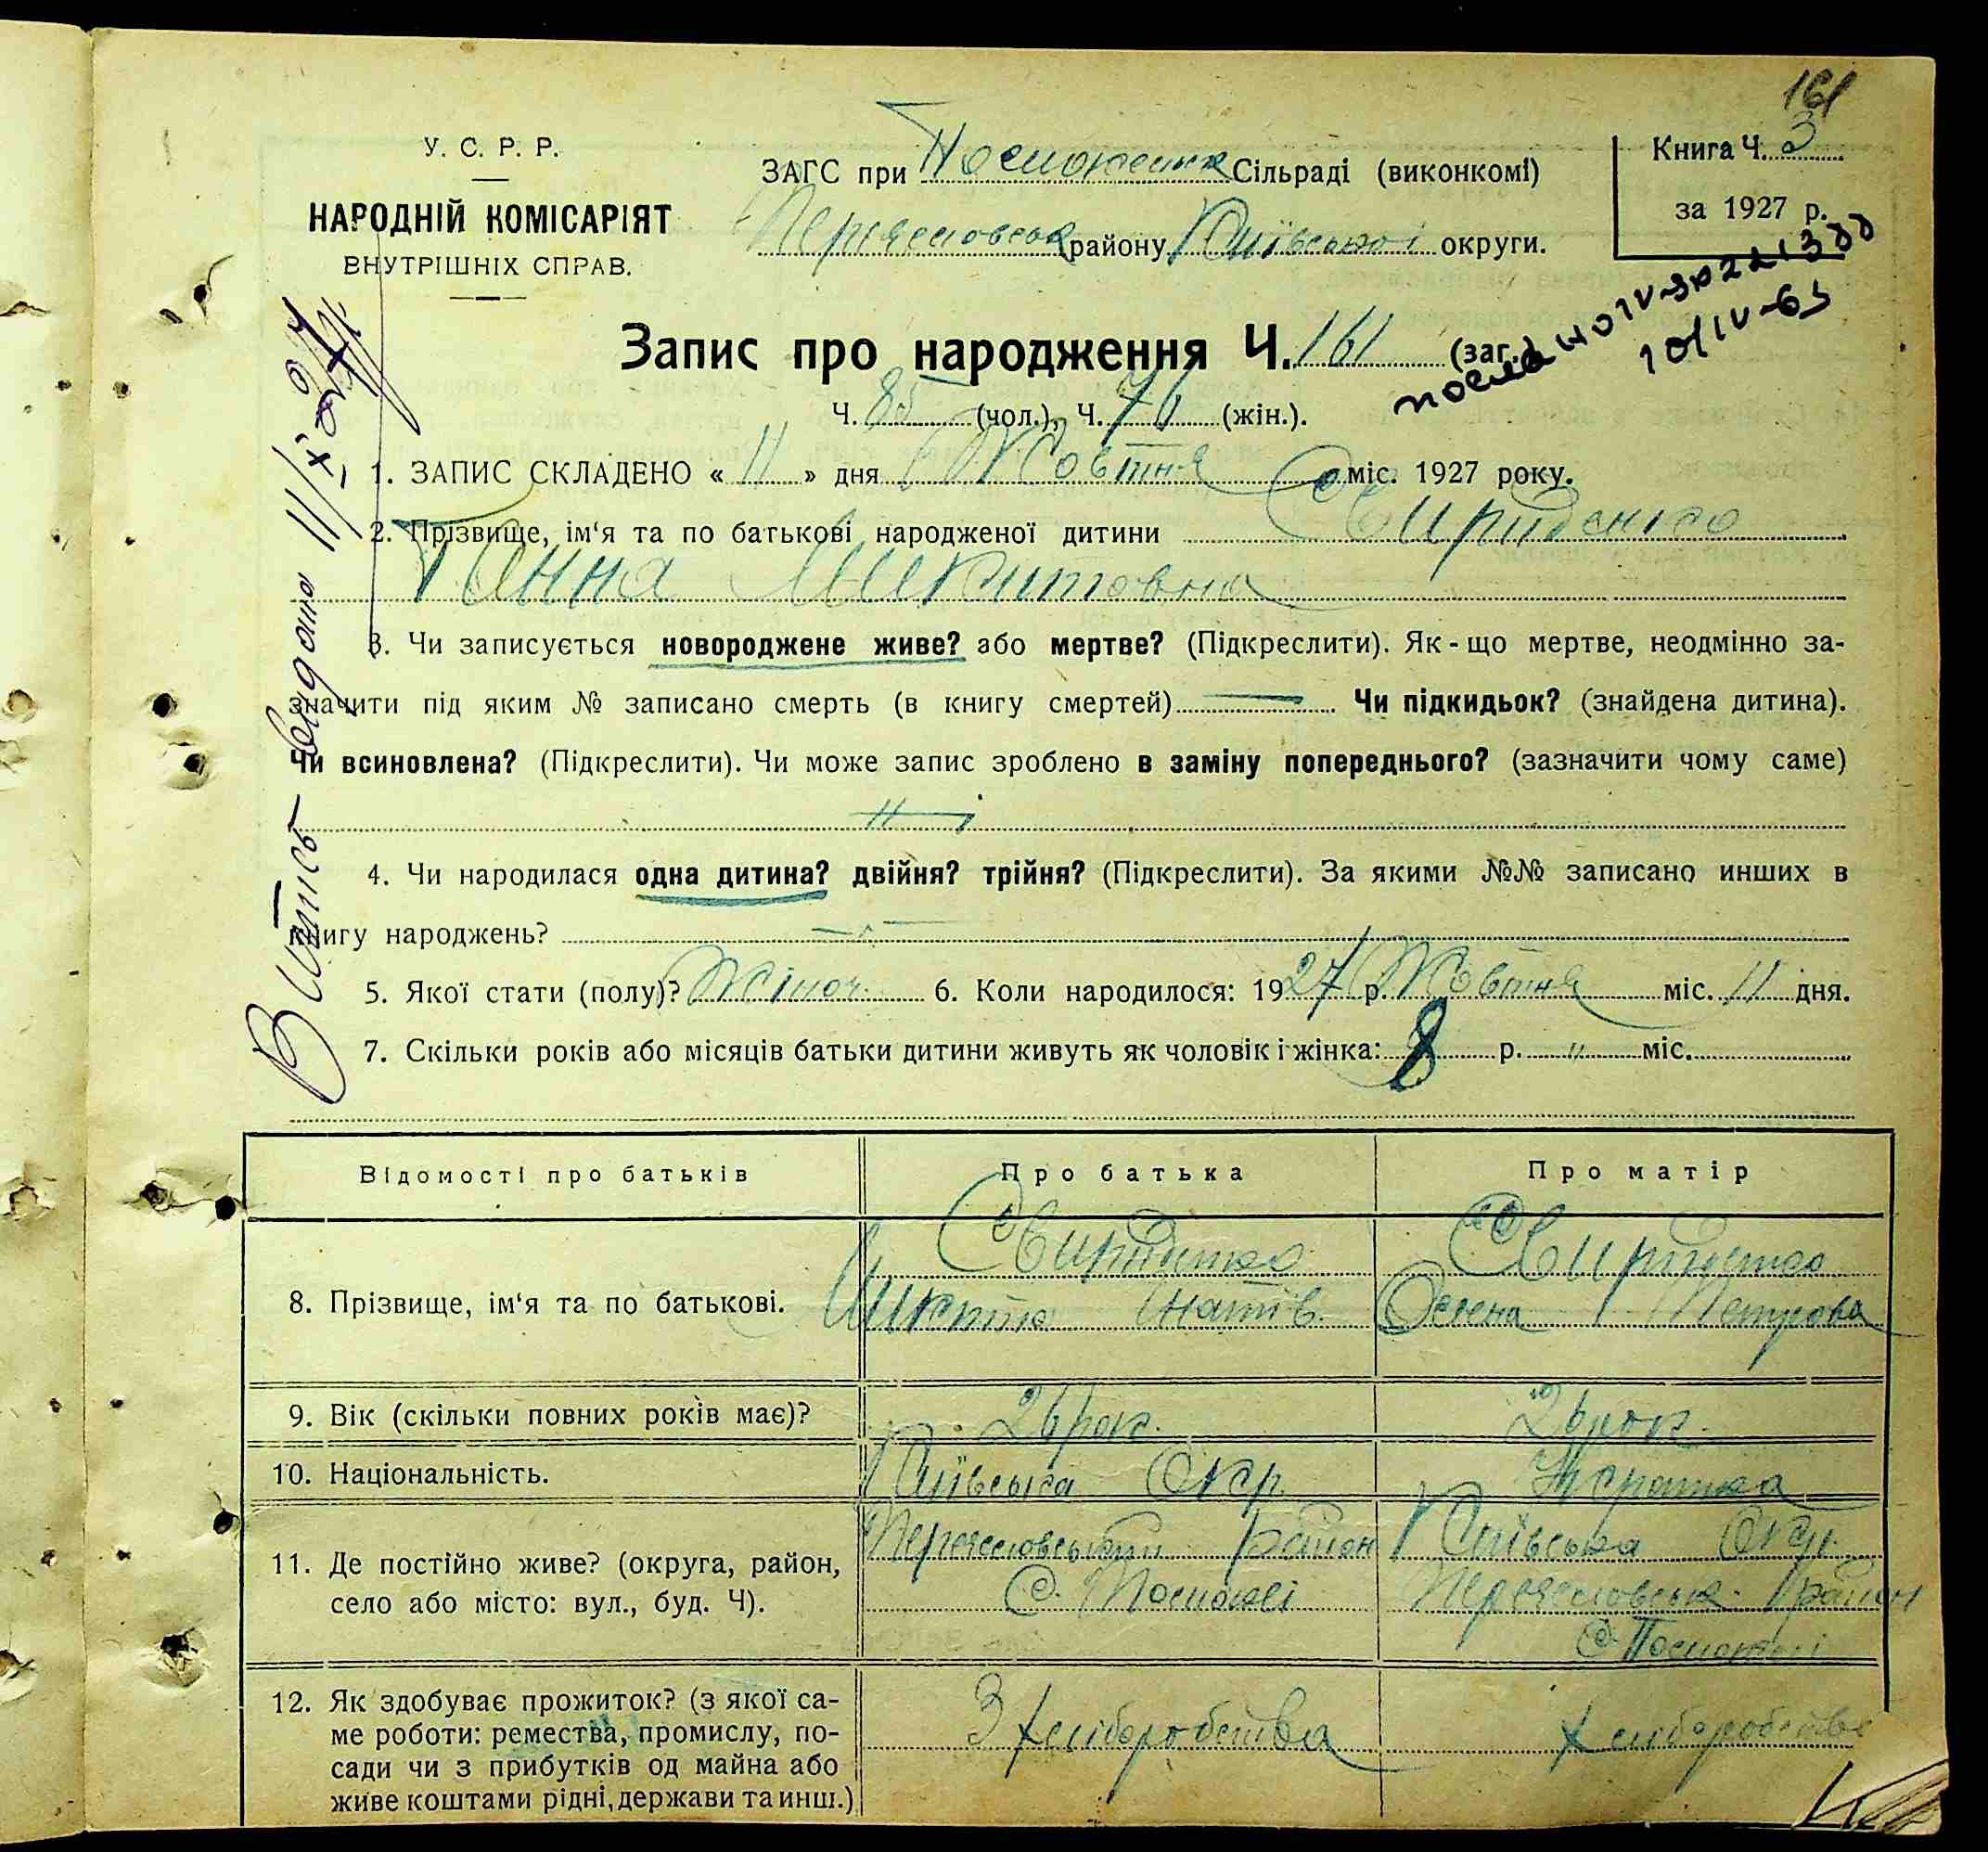 161
У. С. Р. Р.
НАРОДНІЙ КОМІСАРІЯТ
ВНУТРІШНІХ СПРАВ.
ЗАГС при Сільраді (виконкомі)
району Київської округи.
Книга Ч. 3
за 1927 р.
Запис про народження Ч. 161 (заг.)
10/IV-65
Ч. 85 (чол.), Ч. 76 (жін.).
1. ЗАПИС СКЛАДЕНО « 11 » дня Жовтня міс. 1927 року.
2. Прізвище, ім'я та по батькові народженої дитини Свириденко
Ганна Микитовна
3. Чи записується новороджене живе? або мертве? (Підкреслити). Як-що мертве, неодмінно за-
значити під яким № записано смерть (в книгу смертей) — . Чи підкидьок? (знайдена дитина).
Чи всиновлена? (Підкреслити). Чи може запис зроблено в заміну попереднього? (зазначити чому саме)
4. Чи народилася одна дитина? двійня? трійня? (Підкреслити). За якими №№ записано инших в
книгу народжень?
5. Якої стати (полу)? Жіноч. 6. Коли народилося: 1927 р. Жовтня міс. 11 дня.
7. Скільки років або місяців батьки дитини живуть як чоловік і жінка: 8 р. " міс.
Відомості про батьків Про батька Про матір
8. Прізвище, ім'я та по батькові.
Свириденко
Микита
Свириденко
Петрова
9. Вік (скільки повних років має)? 26 рок. 26 рок.
10. Національність. Київська Окр. Українка
11. Де постійно живе? (округа, район,
село або місто: вул., буд. Ч).
район
Київська Окр.
район
12. Як здобуває прожиток? (з якої са-
ме роботи: ремества, промислу, по-
сади чи з прибутків од майна або
живе коштами рідні, держави та инш.)
З хліборобства
хліборобства
Витись видано 11/X